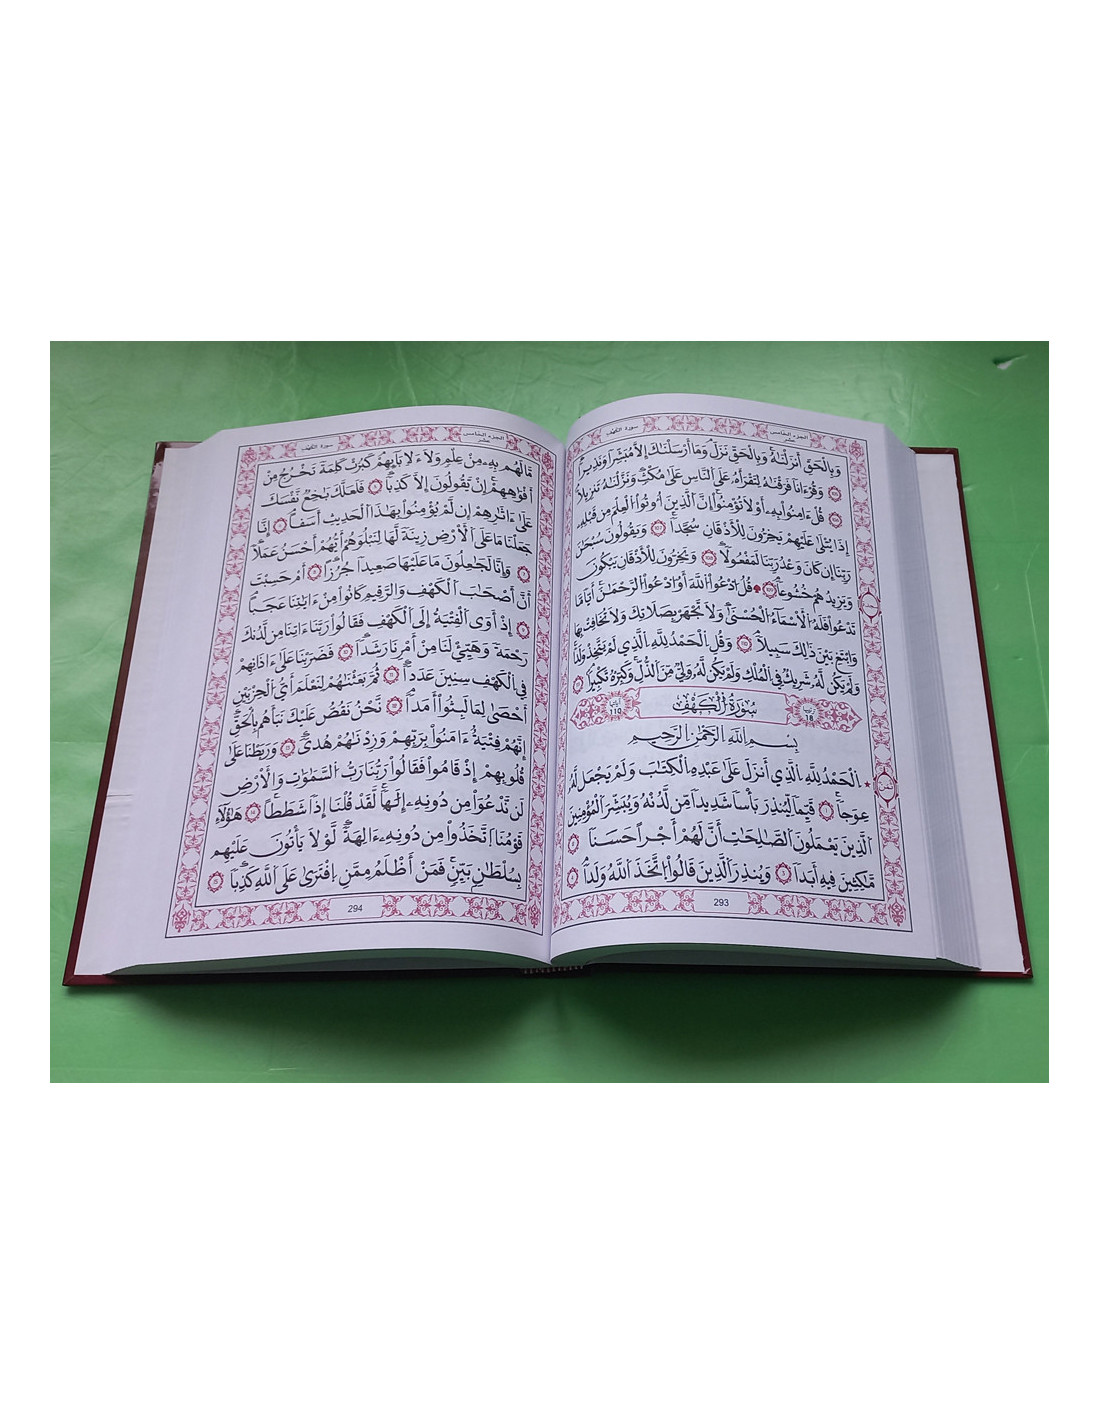 سورة الكهف
الجزء الخامس عشر
وَبِالْحَقِّ أَنزَلْنَاهُ وَبِالْحَقِّ نَزَلَ وَمَا أَرْسَلْنَاكَ إِلَّا مُبَشِّرًا وَنَذِيرًا
105 وَقُرْءَانًا فَرَقْنَاهُ لِتَقْرَأَهُ عَلَى النَّاسِ عَلَى مُكْثٍ وَنَزَّلْنَاهُ تَنزِيلًا
106 قُلْ ءَامِنُوا بِهِ أَوْ لَا تُؤْمِنُوا إِنَّ الَّذِينَ أُوتُوا الْعِلْمَ مِن قَبْلِهِ
إِذَا يُتْلَى عَلَيْهِمْ يَخِرُّونَ لِلْأَذْقَانِ سُجَّدًا 107 وَيَقُولُونَ سُبْحَانَ
رَبِّنَا إِن كَانَ وَعْدُ رَبِّنَا لَمَفْعُولًا 108 وَيَخِرُّونَ لِلْأَذْقَانِ يَبْكُونَ
وَيَزِيدُهُمْ خُشُوعًا 109 قُلِ ادْعُوا اللَّهَ أَوِ ادْعُوا الرَّحْمَنَ أَيًّا مَّا
تَدْعُوا فَلَهُ الْأَسْمَاءُ الْحُسْنَى وَلَا تَجْهَرْ بِصَلَاتِكَ وَلَا تُخَافِتْ بِهَا
وَابْتَغِ بَيْنَ ذَلِكَ سَبِيلًا 110 وَقُلِ الْحَمْدُ لِلَّهِ الَّذِي لَمْ يَتَّخِذْ وَلَدًا
وَلَمْ يَكُن لَّهُ شَرِيكٌ فِي الْمُلْكِ وَلَمْ يَكُن لَّهُ وَلِيٌّ مِّنَ الذُّلِّ وَكَبِّرْهُ تَكْبِيرًا 111
ترتيبها 18 سُورَةُ الْكَهْفِ آياتها 110
بِسْمِ اللَّهِ الرَّحْمَنِ الرَّحِيمِ
الْحَمْدُ لِلَّهِ الَّذِي أَنزَلَ عَلَى عَبْدِهِ الْكِتَابَ وَلَمْ يَجْعَل لَّهُ
عِوَجًا 1 قَيِّمًا لِّيُنذِرَ بَأْسًا شَدِيدًا مِّن لَّدُنْهُ وَيُبَشِّرَ الْمُؤْمِنِينَ
الَّذِينَ يَعْمَلُونَ الصَّالِحَاتِ أَنَّ لَهُمْ أَجْرًا حَسَنًا 2
مَّاكِثِينَ فِيهِ أَبَدًا 3 وَيُنذِرَ الَّذِينَ قَالُوا اتَّخَذَ اللَّهُ وَلَدًا 4
ثمن
293
سورة الكهف
الجزء الخامس عشر
مَّا لَهُم بِهِ مِنْ عِلْمٍ وَلَا لِآبَائِهِمْ كَبُرَتْ كَلِمَةً تَخْرُجُ مِنْ
أَفْوَاهِهِمْ إِن يَقُولُونَ إِلَّا كَذِبًا 5 فَلَعَلَّكَ بَاخِعٌ نَّفْسَكَ
عَلَى ءَاثَارِهِمْ إِن لَّمْ يُؤْمِنُوا بِهَذَا الْحَدِيثِ أَسَفًا 6 إِنَّا
جَعَلْنَا مَا عَلَى الْأَرْضِ زِينَةً لَّهَا لِنَبْلُوَهُمْ أَيُّهُمْ أَحْسَنُ عَمَلًا
7 وَإِنَّا لَجَاعِلُونَ مَا عَلَيْهَا صَعِيدًا جُرُزًا 8 أَمْ حَسِبْتَ
أَنَّ أَصْحَابَ الْكَهْفِ وَالرَّقِيمِ كَانُوا مِنْ ءَايَاتِنَا عَجَبًا
9 إِذْ أَوَى الْفِتْيَةُ إِلَى الْكَهْفِ فَقَالُوا رَبَّنَا ءَاتِنَا مِن لَّدُنكَ
رَحْمَةً وَهَيِّئْ لَنَا مِنْ أَمْرِنَا رَشَدًا 10 فَضَرَبْنَا عَلَى ءَاذَانِهِمْ
فِي الْكَهْفِ سِنِينَ عَدَدًا 11 ثُمَّ بَعَثْنَاهُمْ لِنَعْلَمَ أَيُّ الْحِزْبَيْنِ
أَحْصَى لِمَا لَبِثُوا أَمَدًا 12 نَّحْنُ نَقُصُّ عَلَيْكَ نَبَأَهُم بِالْحَقِّ
إِنَّهُمْ فِتْيَةٌ ءَامَنُوا بِرَبِّهِمْ وَزِدْنَاهُمْ هُدًى 13 وَرَبَطْنَا عَلَى
قُلُوبِهِمْ إِذْ قَامُوا فَقَالُوا رَبُّنَا رَبُّ السَّمَاوَاتِ وَالْأَرْضِ
لَن نَّدْعُوَا مِن دُونِهِ إِلَهًا لَّقَدْ قُلْنَا إِذًا شَطَطًا 14 هَؤُلَاءِ
قَوْمُنَا اتَّخَذُوا مِن دُونِهِ ءَالِهَةً لَّوْلَا يَأْتُونَ عَلَيْهِم
بِسُلْطَانٍ بَيِّنٍ فَمَنْ أَظْلَمُ مِمَّنِ افْتَرَى عَلَى اللَّهِ كَذِبًا 15
294